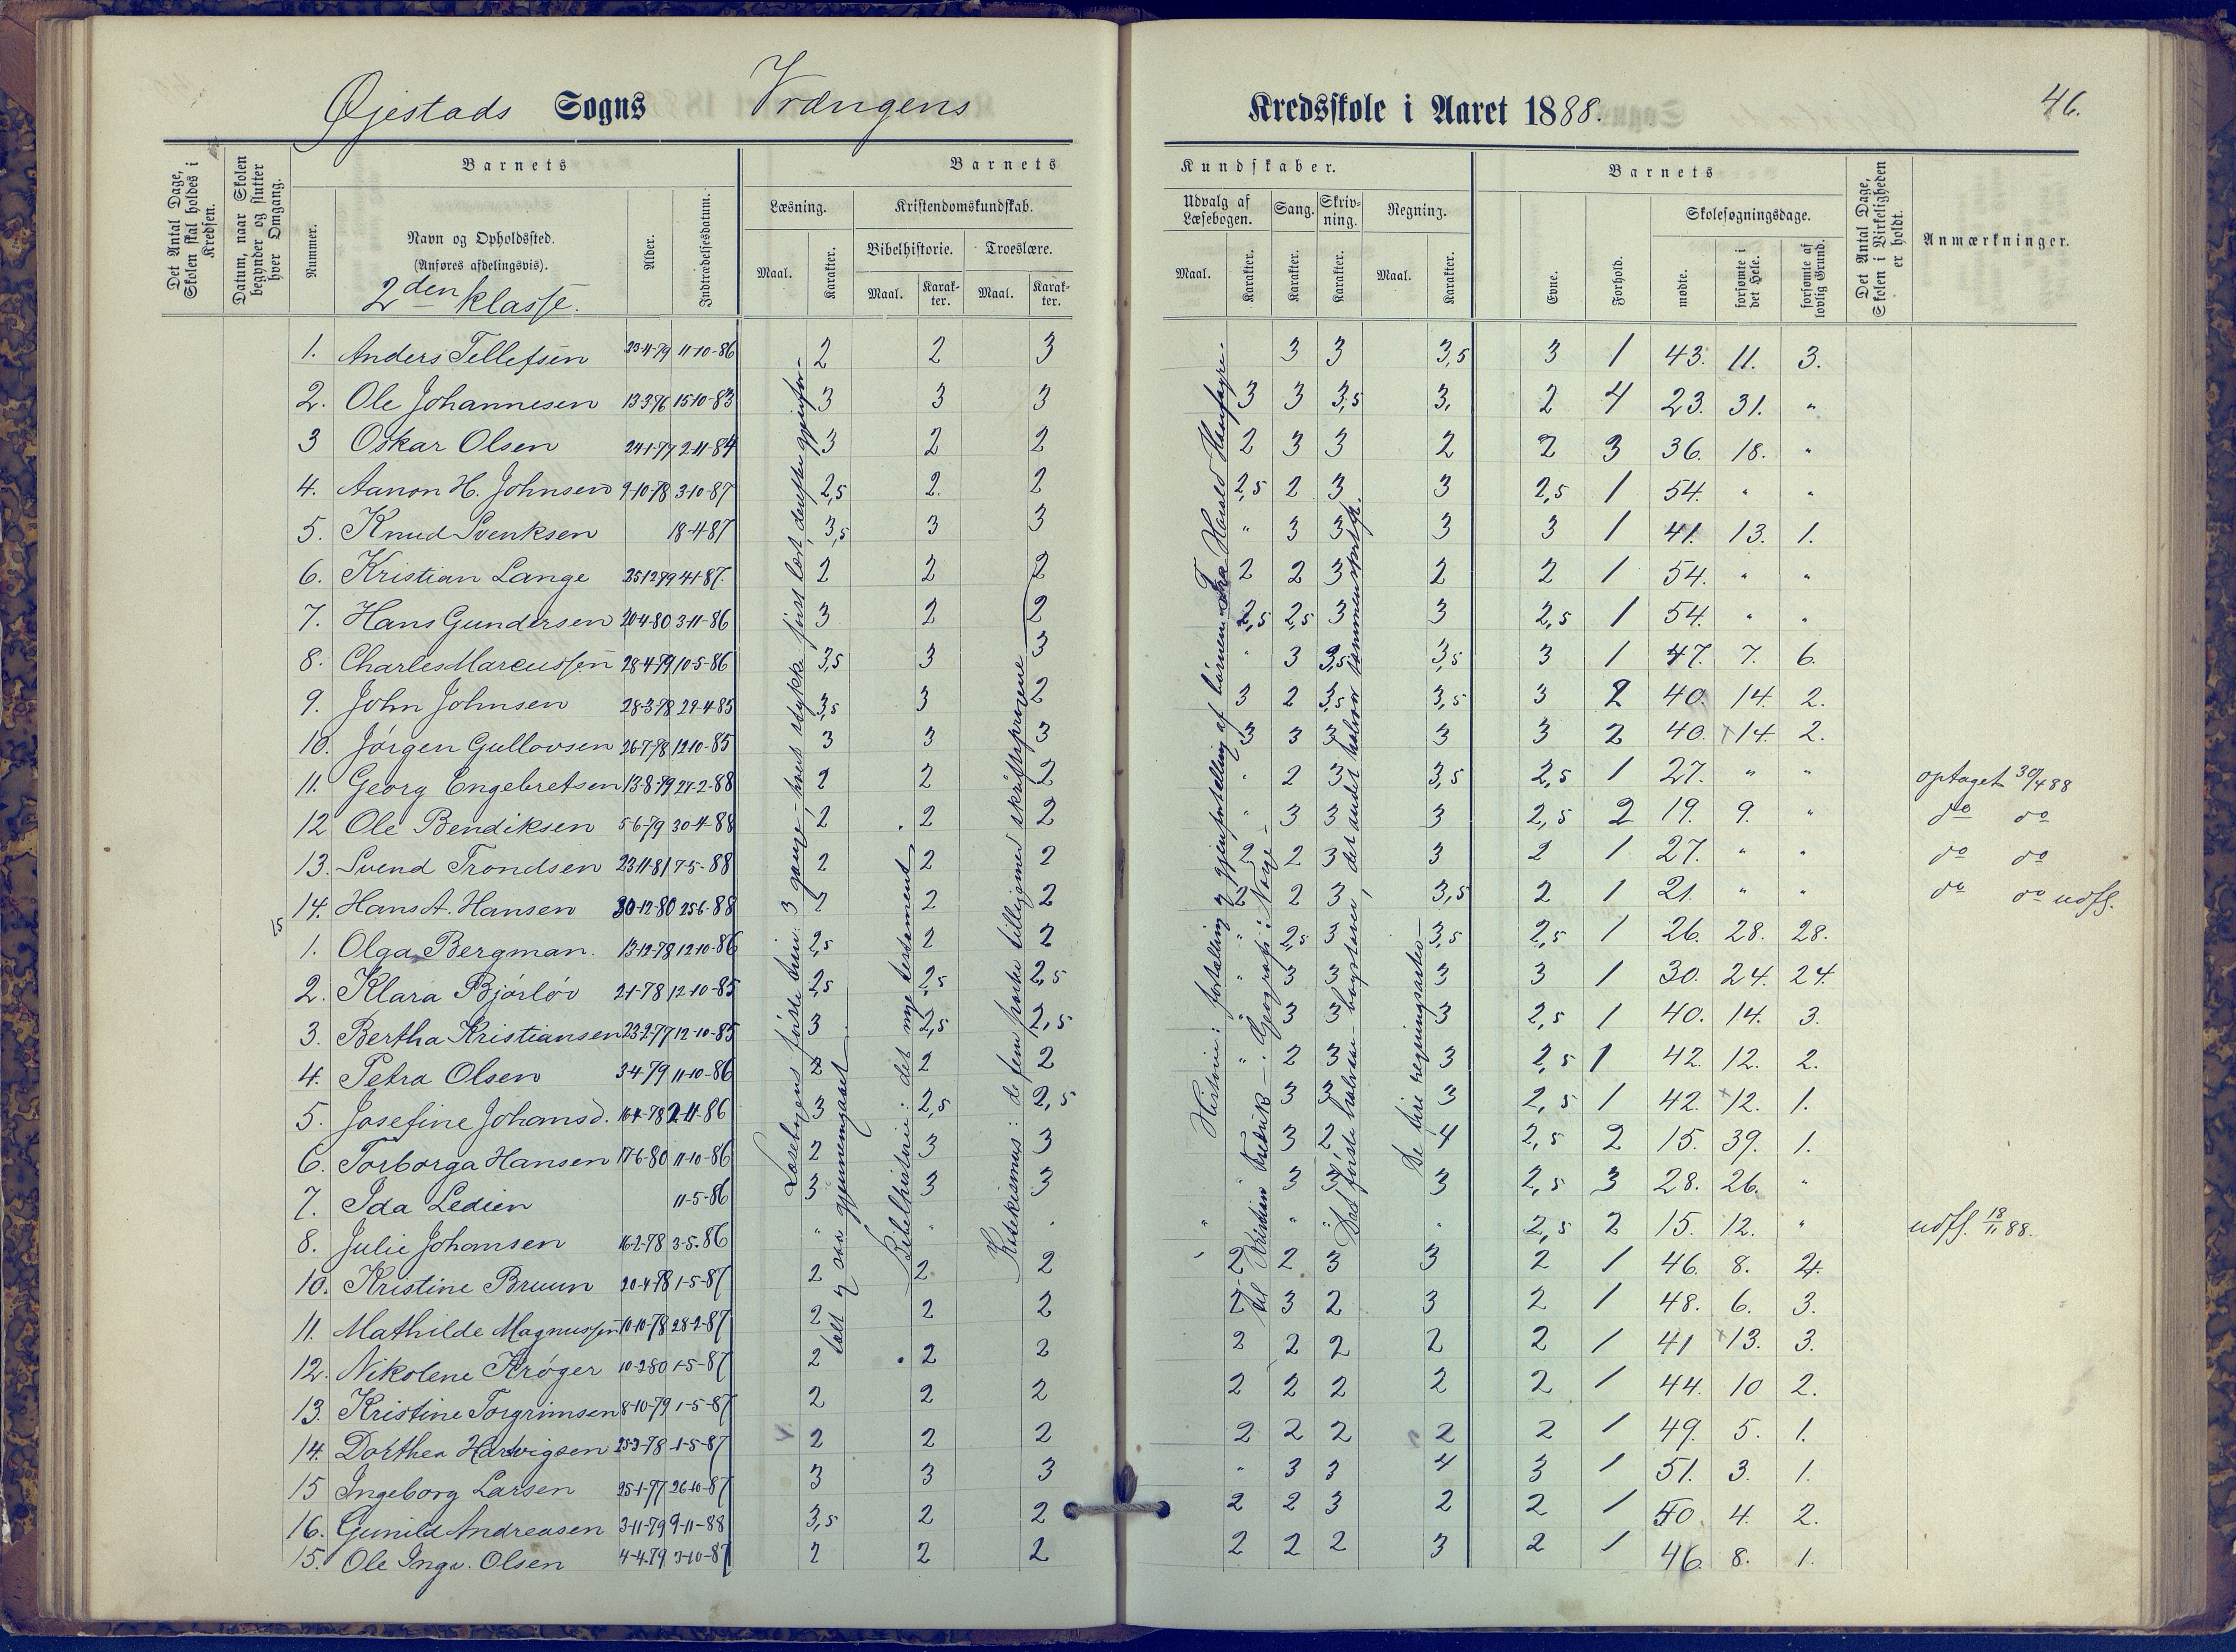 Øjestads Sogns Vrængens Kredsskole i Aaret 1888. 46.
Det Antal Dage, Skolen skal holdes i Kredsen.
Datum, naar Skolen begynder og slutter hver Omgang.
Barnets
Nummer.
Navn og Opholdssted.
(Anføres afdelingsvis).
2den klasse.
Alder.
Indtrædelsesdatum.
Barnets Kundskaber.
Læsning. Maal. Karakter.
Kristendomskundskab.
Bibelhistorie. Maal. Karakter.
Troeslære. Maal. Karakter.
Udvalg af Læsebogen. Maal. Karakter.
Sang. Karakter.
Skrivning. Karakter.
Regning. Maal. Karakter.
Barnets
Evne. Forhold.
Skolesøgningsdage.
mødte. forsømte i det Hele. forsømte af lovlig Grund.
Det Antal Dage, Skolen i Virkeligheden er holdt.
Anmærkninger.
1. Anders Tellefsen 23-4-79 11-10-86 2 2 3 3 3 3,5 3 1 43. 11. 3.
2. Ole Johannesen 13-3-76 15-10-83 3 3 3 3 3 3,5 3, 2 4 23. 31. "
3 Oskar Olsen 24-1-77 2-11-84 3 2 2 2 3 3 2 2 3 36. 18. "
4. Aanon H. Johnsen 9-10-78 3-10-87 2,5 2. 2 2,5 2 3 3 2,5 1 54. " "
5. Knud Svenksen 18-4-87 3,5 3 3 " 3 3 3 3 1 41. 13. 1.
6. Kristian Lange 25-12-79 4-1-87. 2 2 2 2 2 3 2 2 1 54. " "
7. Hans Gundersen 20-4-80 3-11-86 3 2 2 2,5 2,5 3 3 2,5 1 54. " "
8. Charles Marcussen 28-4-79 10-5-86 3,5 3 3 " 3 3,5 3,5 3 1 47. 7. 6.
9. John Johnsen 28-3-78 29-4-85 3,5 3 2 3 2 3,5 3,5 3 2 40. 14. 2.
10. Jörgen Gullovsen 26-7-78 12-10-85 3 3 3 3 3 3 3 3 2 40. 14. 2.
11. Georg Engebretsen 13-8-79 27-2-88 2 2 2 " 2 3 3,5 2,5 1 27. " " optaget 30/4 88
12 Ole Bendiksen 5-6-79 30-4-88 2 2 2 " 3 3 3 2,5 2 19. 9. " do do
13. Svend Trondsen 23-11-81 7-5-88 2 2 2 2 2 3 3 2 1 27. " " do do
14. Hans A. Hansen 30-12-80 25-6-88 2 2 2 2 2 3 3,5 2 1 21. " " do do udfl.
15
1. Olga Bergman. 13-12-78 12-10-86 2,5 2 2 " 2,5 3 3,5 2,5 1 26. 28. 28.
2. Klara Bjørløv 2-1-78 12-10-85 2,5 2,5 2,5 " 3 3 3 3 1 30. 24. 24.
3. Bertha Kristiansen 23-2-77 12-10-85 3 2,5 2,5 " 3 3 3 2,5 1 40. 14. 3.
4. Petra Olsen 3-4-79 11-10-86 2 2 2 " 2 3 3 2,5 1 42. 12. 2.
5. Josefine Johansd. 16-4-78 2-11-86 3 2,5 2,5 3 3 3 2,5 1 42. 12. 1.
6. Torborga Hansen 17-6-80 11-10-86 2 3 3 3 2 4 2,5 2 15. 39. 1.
7. Ida Ledien 11-5-86 3 3 3 " 3 3 3 2,5 3 28. 26. "
8. Julie Johansen 16-2-78 3-5.86 " " " " " " " 2,5 2 15. 12. " udfl. 18/11 88.
10. Kristine Bruun 20-4-78 1-5-87 2 2 2 2 2 3 3 2 1 46. 8. 4.
11. Mathilde Magnussen 10-10-78 28-2-87 2 2 2 2 3 2 3 2 1 48. 6. 3.
12. Nikolene Krøger 10-2-80 1-5-87 2 2 2 2 2 2 2 2 1 41 13. 3.
13. Kristine Torgrimsen 8-10-79 1-5-87 2 2 2 2 2 2 2 2 1 44. 10 2.
14. Dorthea Hartvigsen 25-3-78 1-5-87 2 2 2 2 2 2 2 2 1 49. 5. 1.
15 Ingeborg Larsen 25-1-77 26-10-87 3 3 3 " 3 3 4 3 1 51. 3. 1.
16. Gunild Andreasen 3-11-79 9-11-88 3,5 2 2 2 2 3 2 2 1 50. 4. 2.
15. Ole Ingv. Olsen 4-4-79 3-10-87 2 2 2 2 2 2 3 2 1 46. 8. 1.
Læsebogens første trin: 3 gange; hvert stykke først læst, derefter gjenfor-
talt og saa gjennemgaaet.
Bibelhistorie: det nye testament
Katekismus: de fem parter tilligemed skriftsprogene
Historie: fortælling og gjenfortælling af börnene Fra Harald Haarfagre
til Kristian Fredrik. Geografi: Norge.
Det første halvaar bogstaver, det andet halvaar sammenskrift.
De fire regningsarter